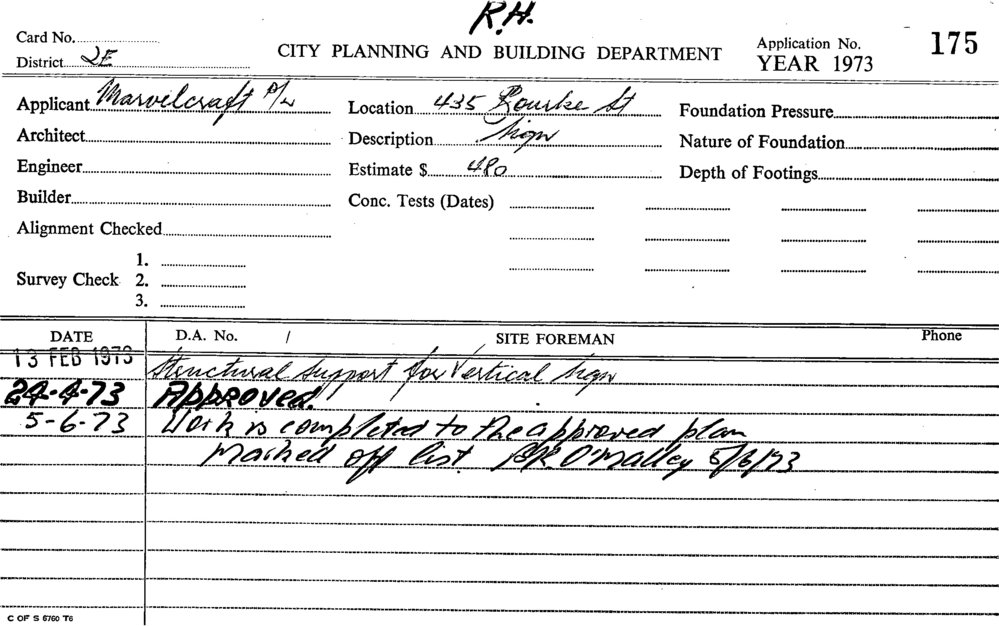 R.H.
Card No.
District 2E
CITY PLANNING AND BUILDING DEPARTMENT
Application No. 175
YEAR 1973
Applicant Marvelcraft P/L
Location 435 Bourke St
Foundation Pressure
Architect
Description Sign
Nature of Foundation
Engineer
Estimate $ 480
Depth of Footings
Builder
Conc. Tests (Dates)
Alignment Checked
Survey Check 1.
2.
3.
DATE D.A. No. / SITE FOREMAN Phone
13 FEB 1973 Structural support for Vertical Sign
24-4-73 Approved.
5-6-73 Work is completed to the approved plan
marked off list O'Malley 5/6/73
C OF S 6760 T6